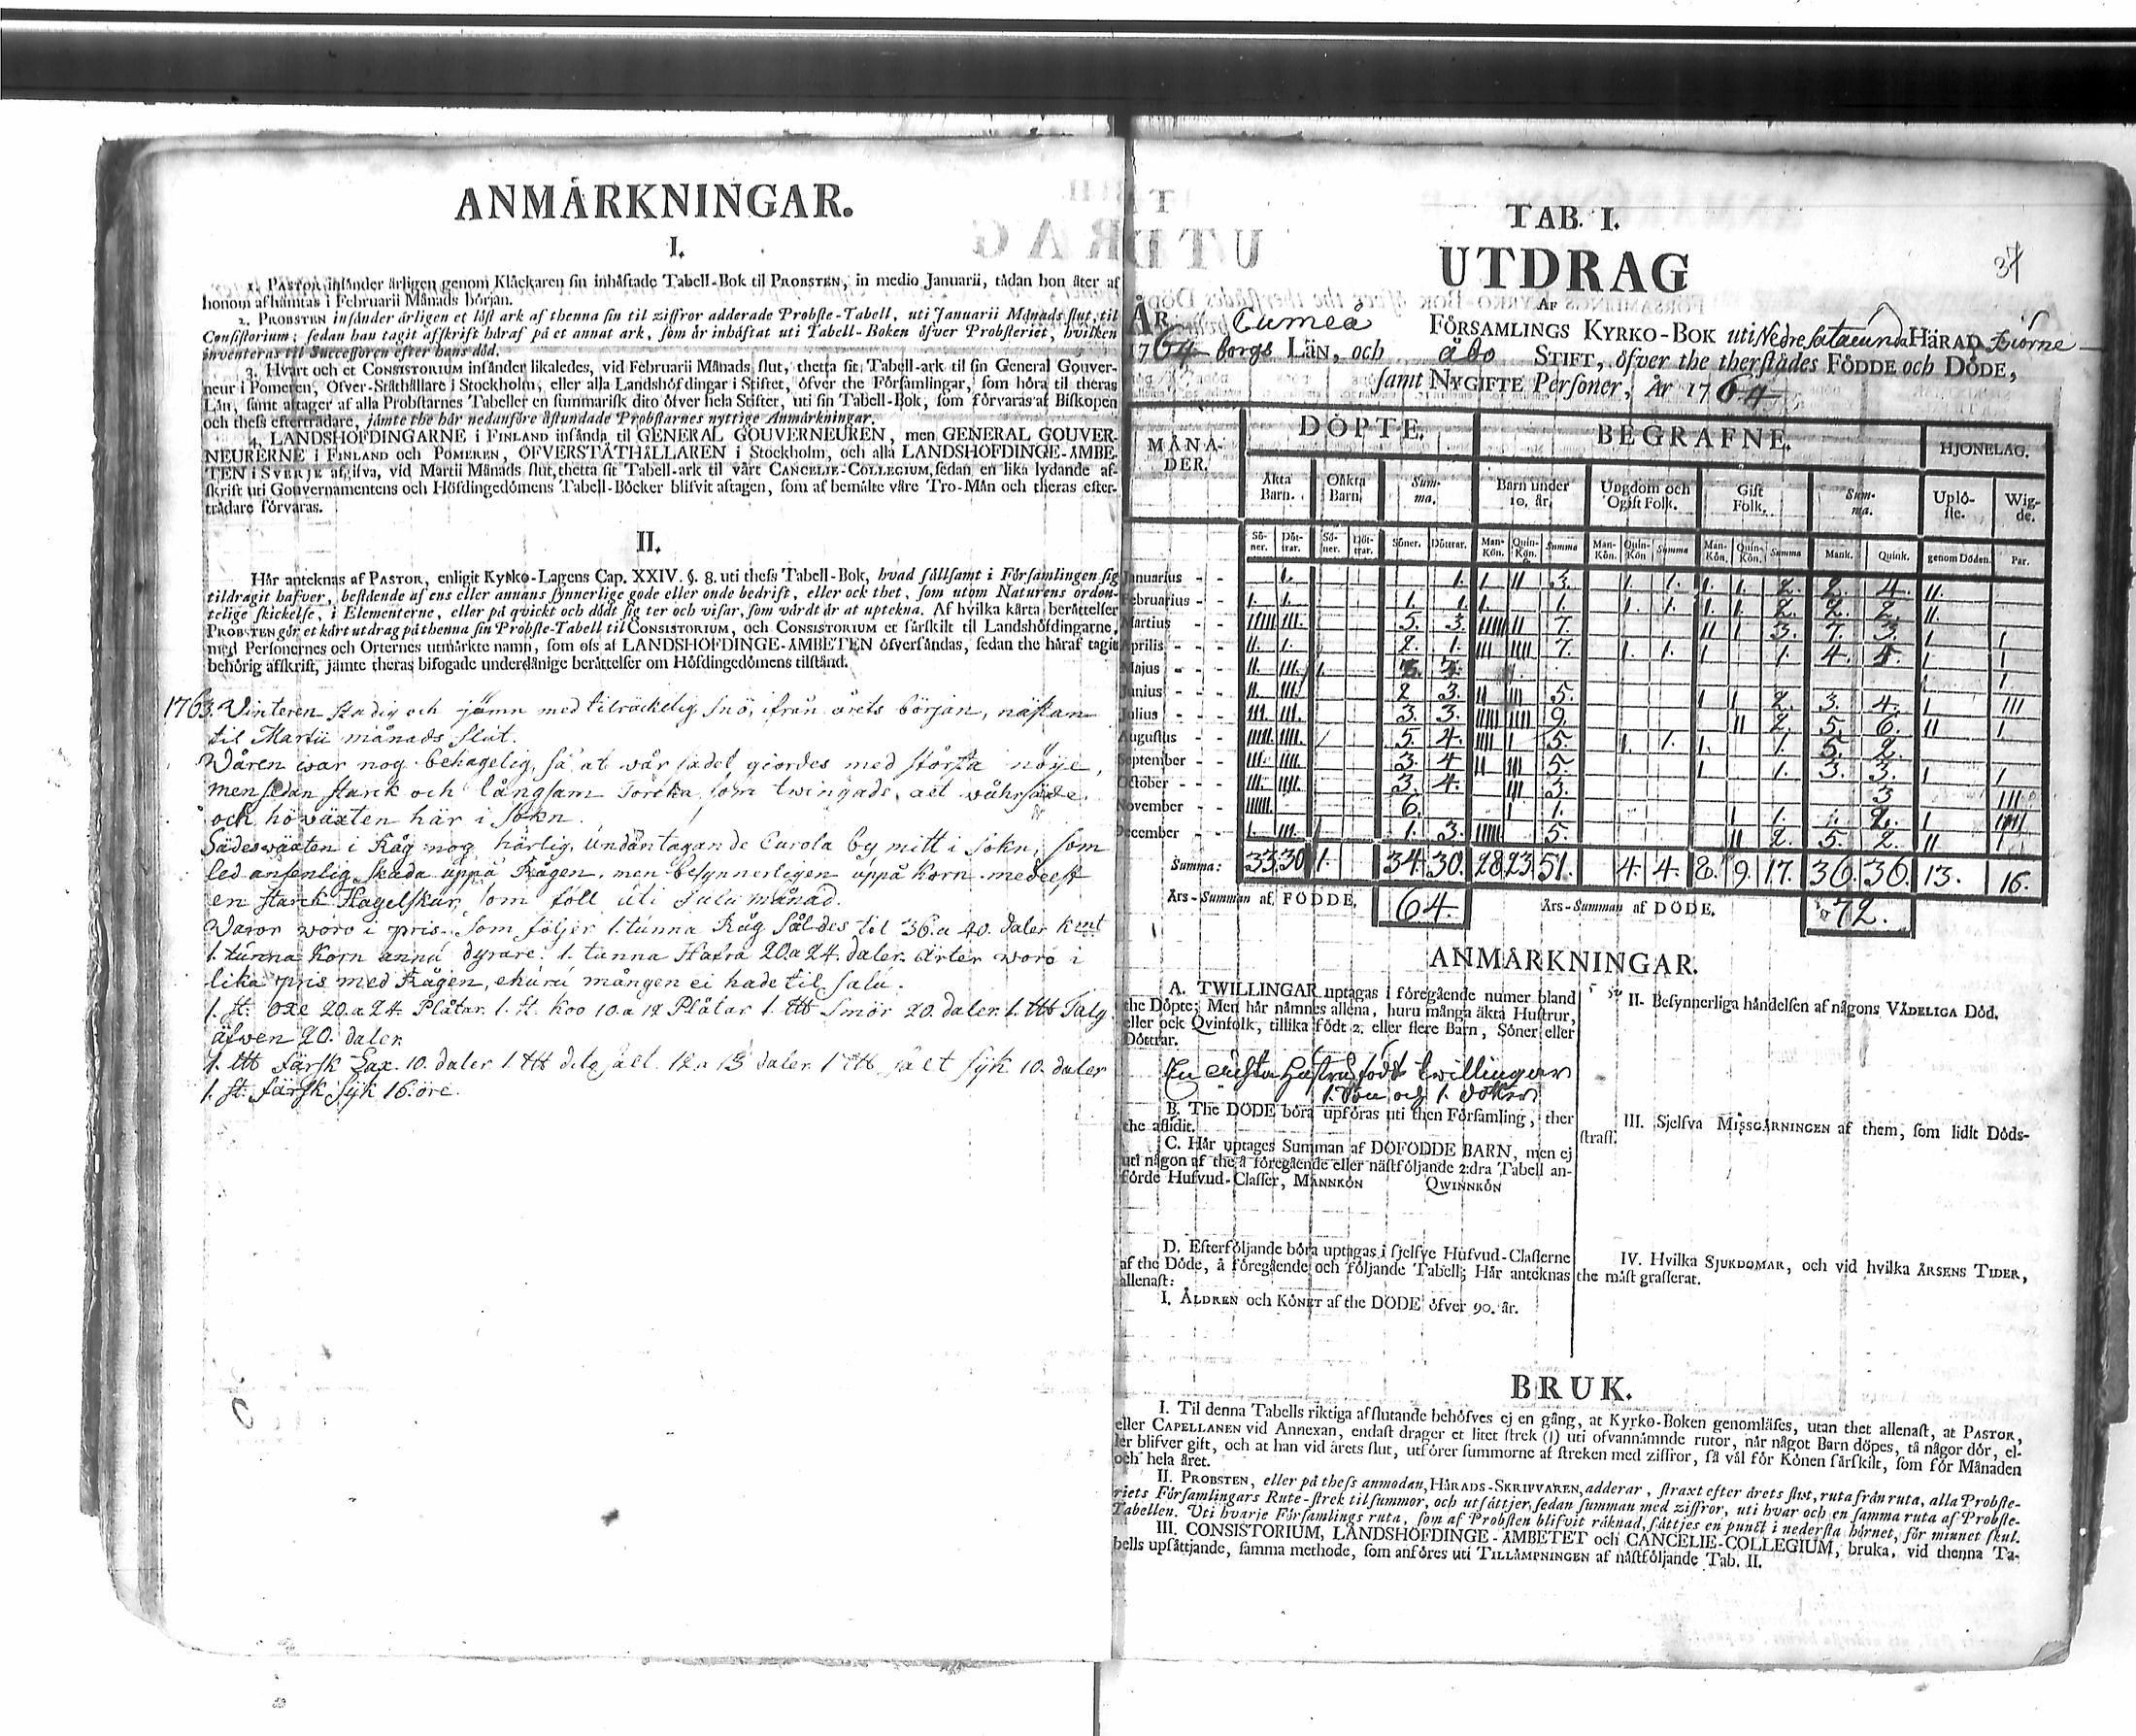 ANMÄRKNINGAR.
I.
1. PASTOR insänder årligen genom Klåckaren sin inhäftade Tabell-Bok til PROBSTEN, in medio Januarii, tådan hon åter af
honom afhämtas i Februarii Månads början.
2. PROBSTEN insänder årligen et löst ark af thenna sin til ziffror adderade Probste-Tabell, uti Januarii Månads slut, til
Consistorium; sedan han tagit afskrift häraf på et annat ark, som är inhäftat uti Tabell-Boken öfver Probsteriet, hvilken
inventeras til Successoren efter hans död.
3. Hvart och et CONSISTORIUM insänder likaledes, vid Februarii Månads slut, thetta sit Tabell-ark til sin General Gouver-
neur i Pomeren, Öfver-Ståthållare i Stockholm, eller alla Landshöfdingar i Stiftet, öfver the Församlingar, som höra til theras
Län, samt aftager af alla Probstarnes Tabeller en summarisk dito öfver hela Stiftet, uti sin Tabell-Bok, som förvaras af Biskopen
och thess efterträdare, jämte the här nedanföre åstundade Probstarnes nyttige Anmärkningar.
4. LANDSHÖFDINGARNE i FINLAND insända til GENERAL GOUVERNEUREN, men GENERAL GOUVER-
NEURERNE i FINLAND och POMEREN, ÖFVERSTÅTHÅLLAREN i Stockholm, och alla LANDSHÖFDINGE-ÄMBE-
TEN i SVERJE afgifva, vid Martii Månads slut, thetta sit Tabell-ark til vårt CANCELIE-COLLEGIUM, sedan en lika lydande af-
skrift uti Gouvernamentens och Höfdingedömens Tabell-Böcker blifvit aftagen, som af bemälte våre Tro-Män och theras efter-
trädare förvaras.
II.
Här anteknas af PASTOR, enligit Kyrko-Lagens Cap. XXIV. §. 8. uti thess Tabell-Bok, hvad sällsamt i Församlingen sig
tildragit hafver, bestående af ens eller annans synnerlige gode eller onde bedrift, eller ock thet, som utom Naturens orden-
telige skickelse, i Elementerne, eller på qvickt och dödt sig ter och visar, som värdt är at uptekna. Af hvilka kårta berättelser
PROBSTEN gör et kårt utdrag på thenna sin Probste-Tabell til CONSISTORIUM, och CONSISTORIUM et särskilt til Landshöfdingarne,
med Personernes och Orternes utmärkte namn, som oss af LANDSHÖFDINGE-ÄMBETEN öfversändas, sedan the häraf tagit
behörig afskrift, jämte theras bifogade underdånige berättelser om Höfdingedömens tilstånd.
1763. Vinteren stadig och jämn med tilräckelig Snö, ifrån årets början, nästan
til Martii månads slut.
Våren war nog behagelig, så at wår sädet giordes med största nöije,
men sedan starck och långsam Torcka, som twingade alt wåhrsäde
och höväxten här i Sokn.
Sädeswäxten i Råg nog härlig, undantagande Carola by mitt i Sokn, som
led ansenlig skada uppå Rågen, men besynnerligen uppå Korn medelst
en starck Hagelskur, som föll uti Julii månad.
Waror woro i pris som följer 1. tunna Råg såldes til 36. a 40. daler kmt
1. tunna Korn ännu dyrare. 1. tunna Hafra 20. a 24. daler. Ärter woro i
lika pris med Rågen, ehuru mången ei hade til salu.
1. st. Oxe 20. a 24. Plåtar 1. st. Koo 10. a 12 Plåtar 1. ltt Smör 20. daler. 1. ltt Talg
äfwen 20. daler
1. ltt Färsk Lax. 10. daler 1. ltt dito salt 12 a 13 daler 1 ltt salt Syk 10. daler
1. st. färsk Syk 16. öre.
37
TAB. I.
UTDRAG
AF
ÅR Cumeå FÖRSAMLINGS KYRKO-BOK uti Nedre Satacunda HÄRAD, Biörne-
1764 borgs LÄN, och Åbo STIFT, öfver the therstädes FÖDDE och DÖDE,
samt NYGIFTE Personer, År 1764
MÅNA-DER. DÖPTE. BEGRAFNE. HJONELAG.
Äkta Barn. Oäkta Barn. Sum-ma. Barn under 10. år. Ungdom och Ogift Folk. Gift Folk. Sum-ma. Uplö-ste. Wig-de.
Sö-ner. Döt-trar. Sö-ner. Döt-trar. Söner. Döttrar. Man-Kön. Quin-Kön. Summa Man-Kön. Quin-Kön Summa Man-Kön. Quin-Kön. Summa Mank. Quink. genom Döden. Par.
Januarius - - 1. 1. I II 3. 1. 1. 1. 1. 2. 2. 4. II.
Februarius - - 1. 1. 1. 1. 1. 1. 1. 1. 1. 1. 2. 2. 2. II.
Martius - - IIIII III. 5. 3. IIIII II 7. II 1 3. 7. 3. 1. 1
Aprilis - - II. 1. 2. 1. III IIII 7. 1. 1. 1 1. 4. 4. 1. 1
Majus - - II. III. 1. 3. 3. 1
Junius - - II. III. 2 3. II III 5. 1 1 2. 3. 4. 1. III
Julius - - III. III. 3. 3. IIIII IIII 9. II 2. 5. 6. II 1
Augustus - - IIIII. IIII. 5. 4. IIII 1 5. 1. 1. 1. 1. 5. 2.
September - - III. IIII. 3. 4 II III 5. 1 1. 3. 3. 1 1
October - - III. IIII. 3. 4. III 3. 3 III
November - - IIIIII. 6. 1 1. 1 1. 2. 1
December - - 1. III. 1. 3. IIIII 5. II 2. 5. 2. II 1.
Summa: 33. 30 1. 34. 30. 28. 23. 51. 4. 4. 8. 9. 17. 36. 36. 13. 16.
Års-Summan af FÖDDE. 64. Års-Summan af DÖDE. 72.
ANMÄRKNINGAR.
A. TWILLINGAR uptagas i föregående numer bland
the Döpte; Men här nämnes allena, huru många äkta Hustrur,
eller ock Qvinfolk, tillika födt 2. eller flere Barn, Söner eller
Döttrar.
En ächta hustru födt twillingar
1. Son och 1. dotter
B. The DÖDE böra upföras uti then Församling, ther
the aflidit.
C. Här uptages Summan af DÖFÖDDE BARN, men ej
uti någon af the å föregående eller nästföljande 2:dra Tabell an-
förde Hufvud-Classer, MANNKÖN QWINNKÖN
D. Efterföljande böra uptagas i sjelfve Hufvud-Classerne
af the Döde, å föregående och följande Tabell; Här anteknas
allenast:
I. ÅLDREN och KÖNET af the DÖDE öfver 90. år.
II. Besynnerliga händelsen af någons VÅDELIGA Död.
III. Sjelfva MISSGÄRNINGEN af them, som lidit Döds-
straff.
IV. Hvilka SJUKDOMAR, och vid hvilka ÅRSENS TIDER,
the mäst grasserat.
BRUK.
I. Til denna Tabells riktiga afslutande behöfves ej en gång, at Kyrko-Boken genomläses, utan thet allenast, at PASTOR,
eller CAPELLANEN vid Annexan, endast drager et litet strek (I) uti ofvannämnde rutor, når något Barn döpes, tå någor dör, el-
ler blifver gift, och at han vid årets slut, utförer summorne af streken med ziffror, så väl för Könen särskilt, som för Månaden
och hela året.
II. PROBSTEN, eller på thess anmodan, HÄRADS-SKRIFVAREN, adderar, straxt efter årets slut, ruta från ruta, alla Probste-
riets Församlingars Rute-strek til summor, och utsättjer, sedan summan med ziffror, uti hvar och en samma ruta af Probste-
Tabellen. Uti hvarje Församlings ruta, som af Probsten blifvit räknad, sättjes en punct i nedersta hörnet, för minnet skul.
III. CONSISTORIUM, LANDSHÖFDINGE-ÄMBETET och CANCELIE-COLLEGIUM, bruka, vid thenna Ta-
bells upsättjande, samma methode, som anföres uti TILLÄMPNINGEN af nästföljande Tab. II.